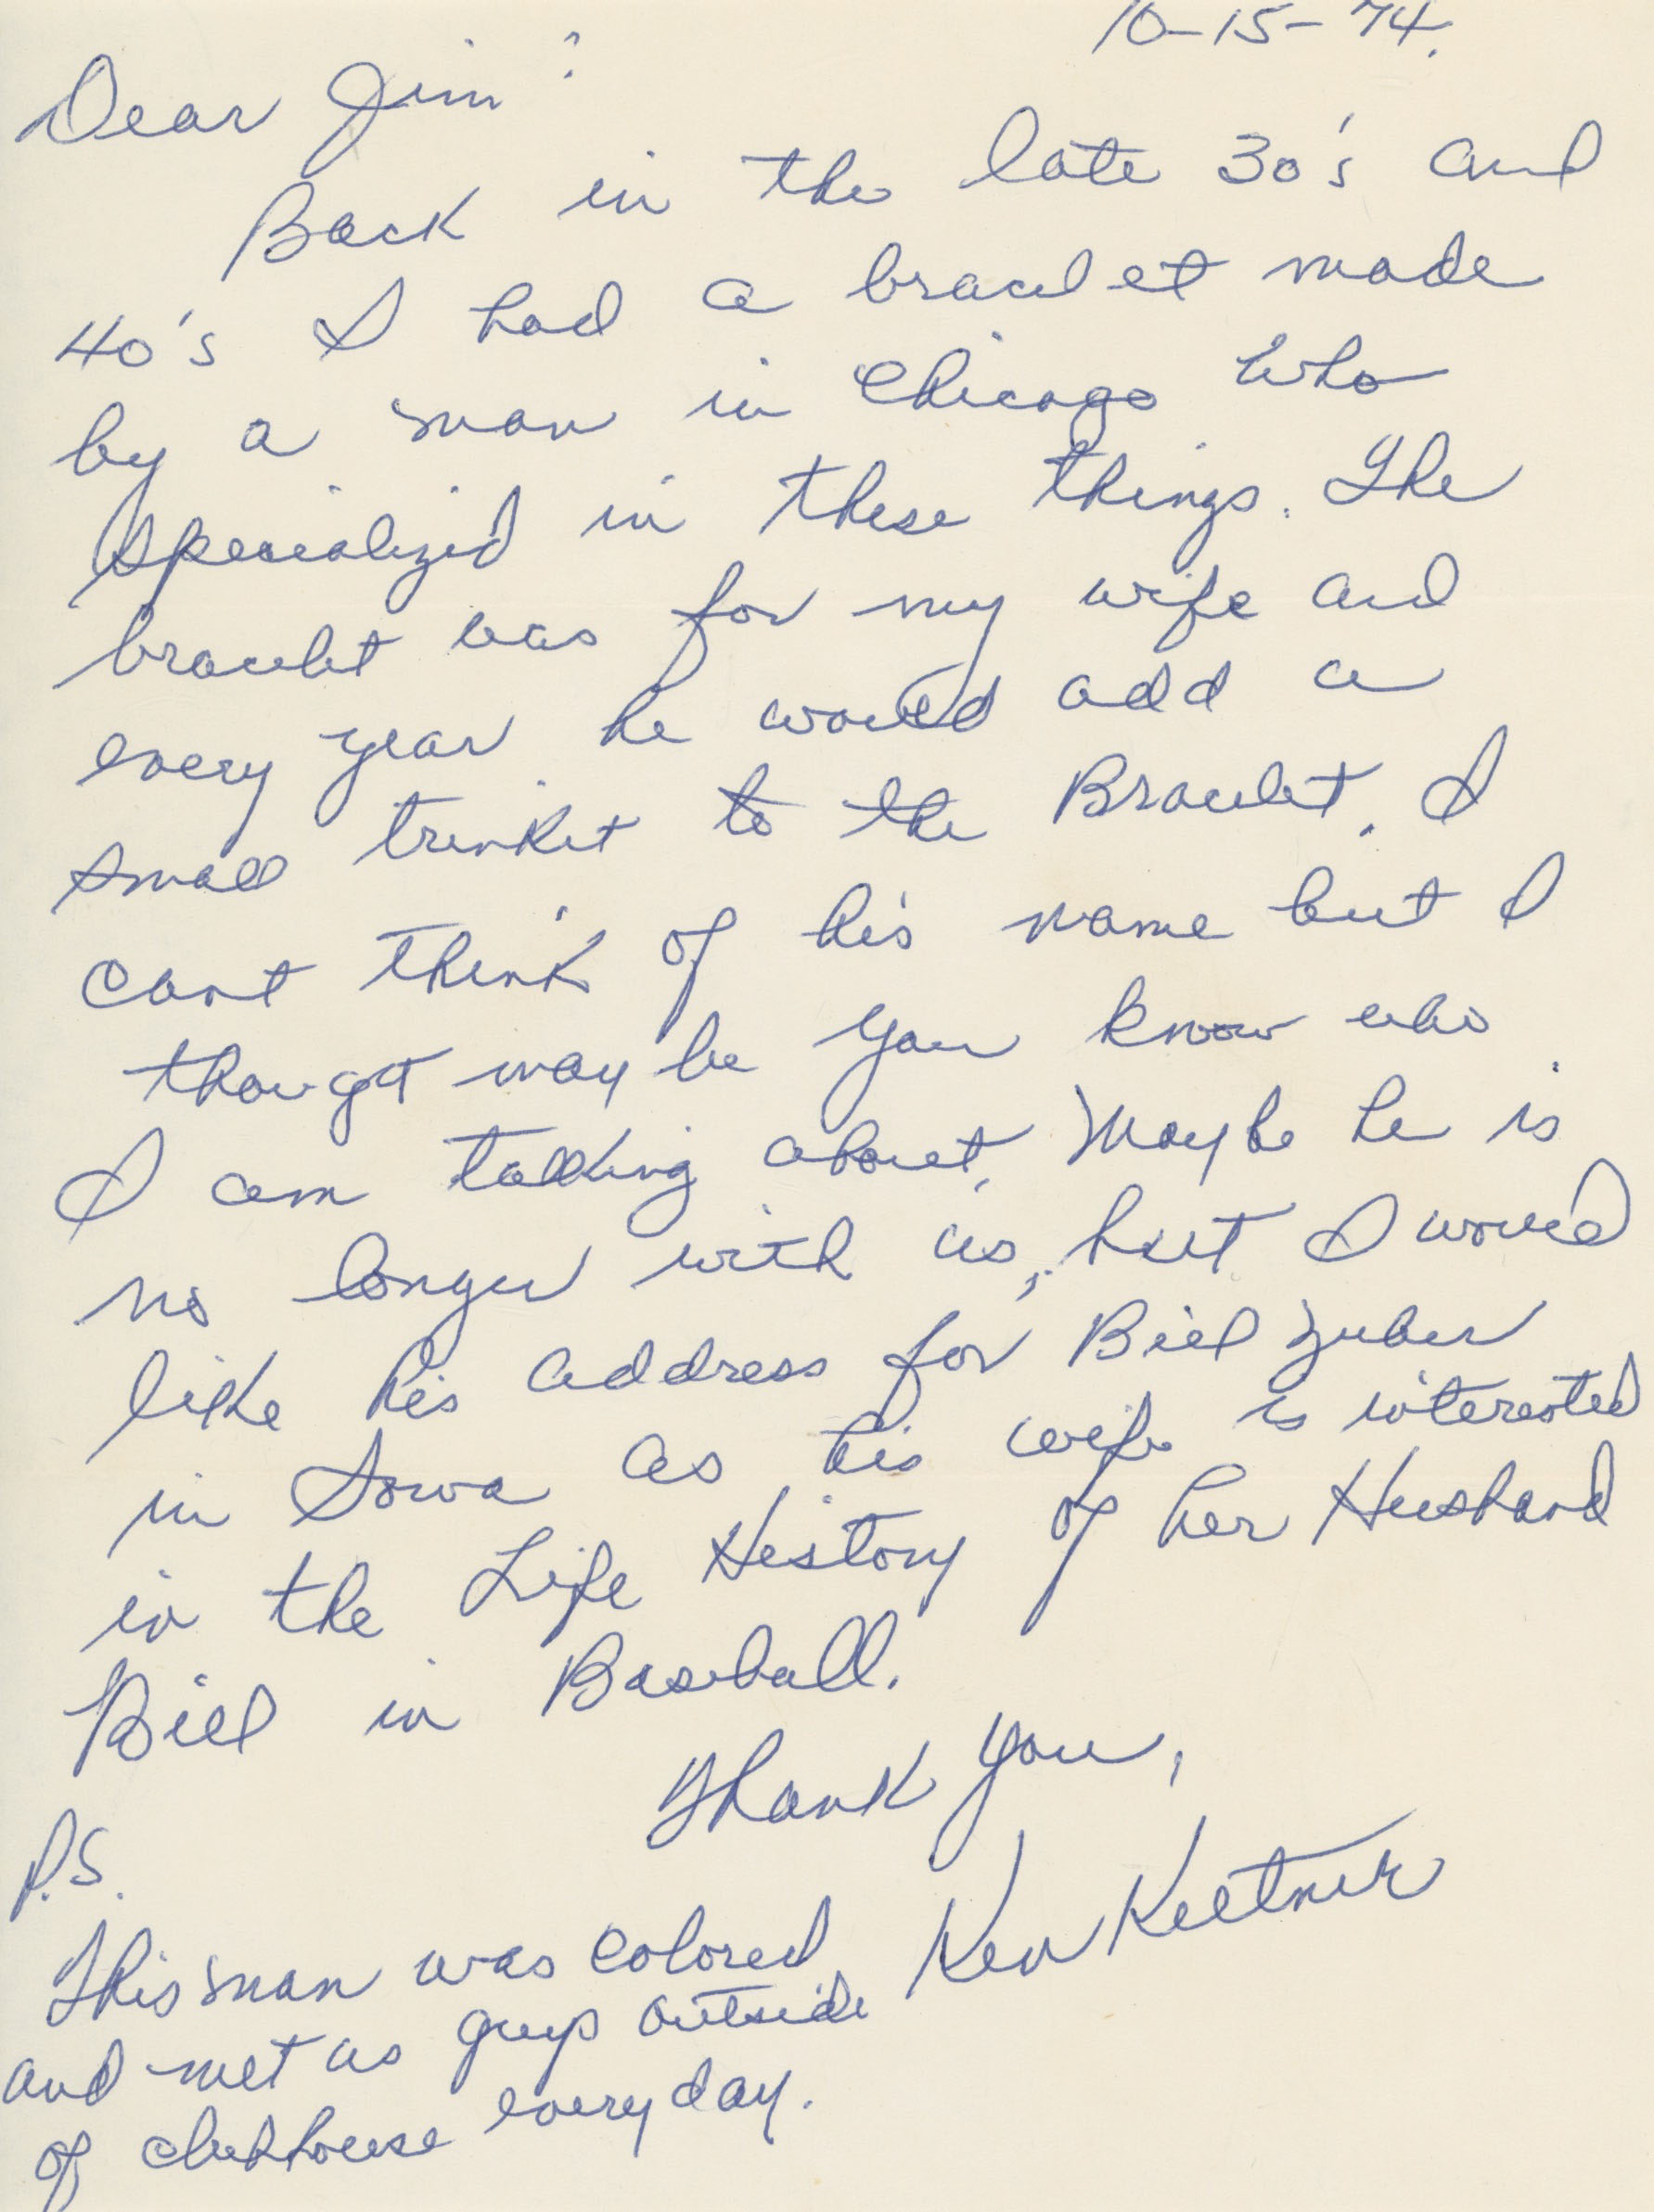 10-15-74.
Dear Jim:
Back in the late 30's and
40's I had a bracelet made
by a man in Chicago who
specialized in these things. The
bracelet was for my wife and
every year he would add a
small trinket to the Bracelet. I
cant think of his name but I
thought may be you know who
I am talking about. Maybe he is
no longer with us, but I would
like his address for Bill Zuber
in Iowa as his wife is interested
in the Life History of her Husband
Bill in Baseball.
Thank You,
Ken Keltner
P.S.
This man was colored
and met us guys outside
of clubhouse every day.